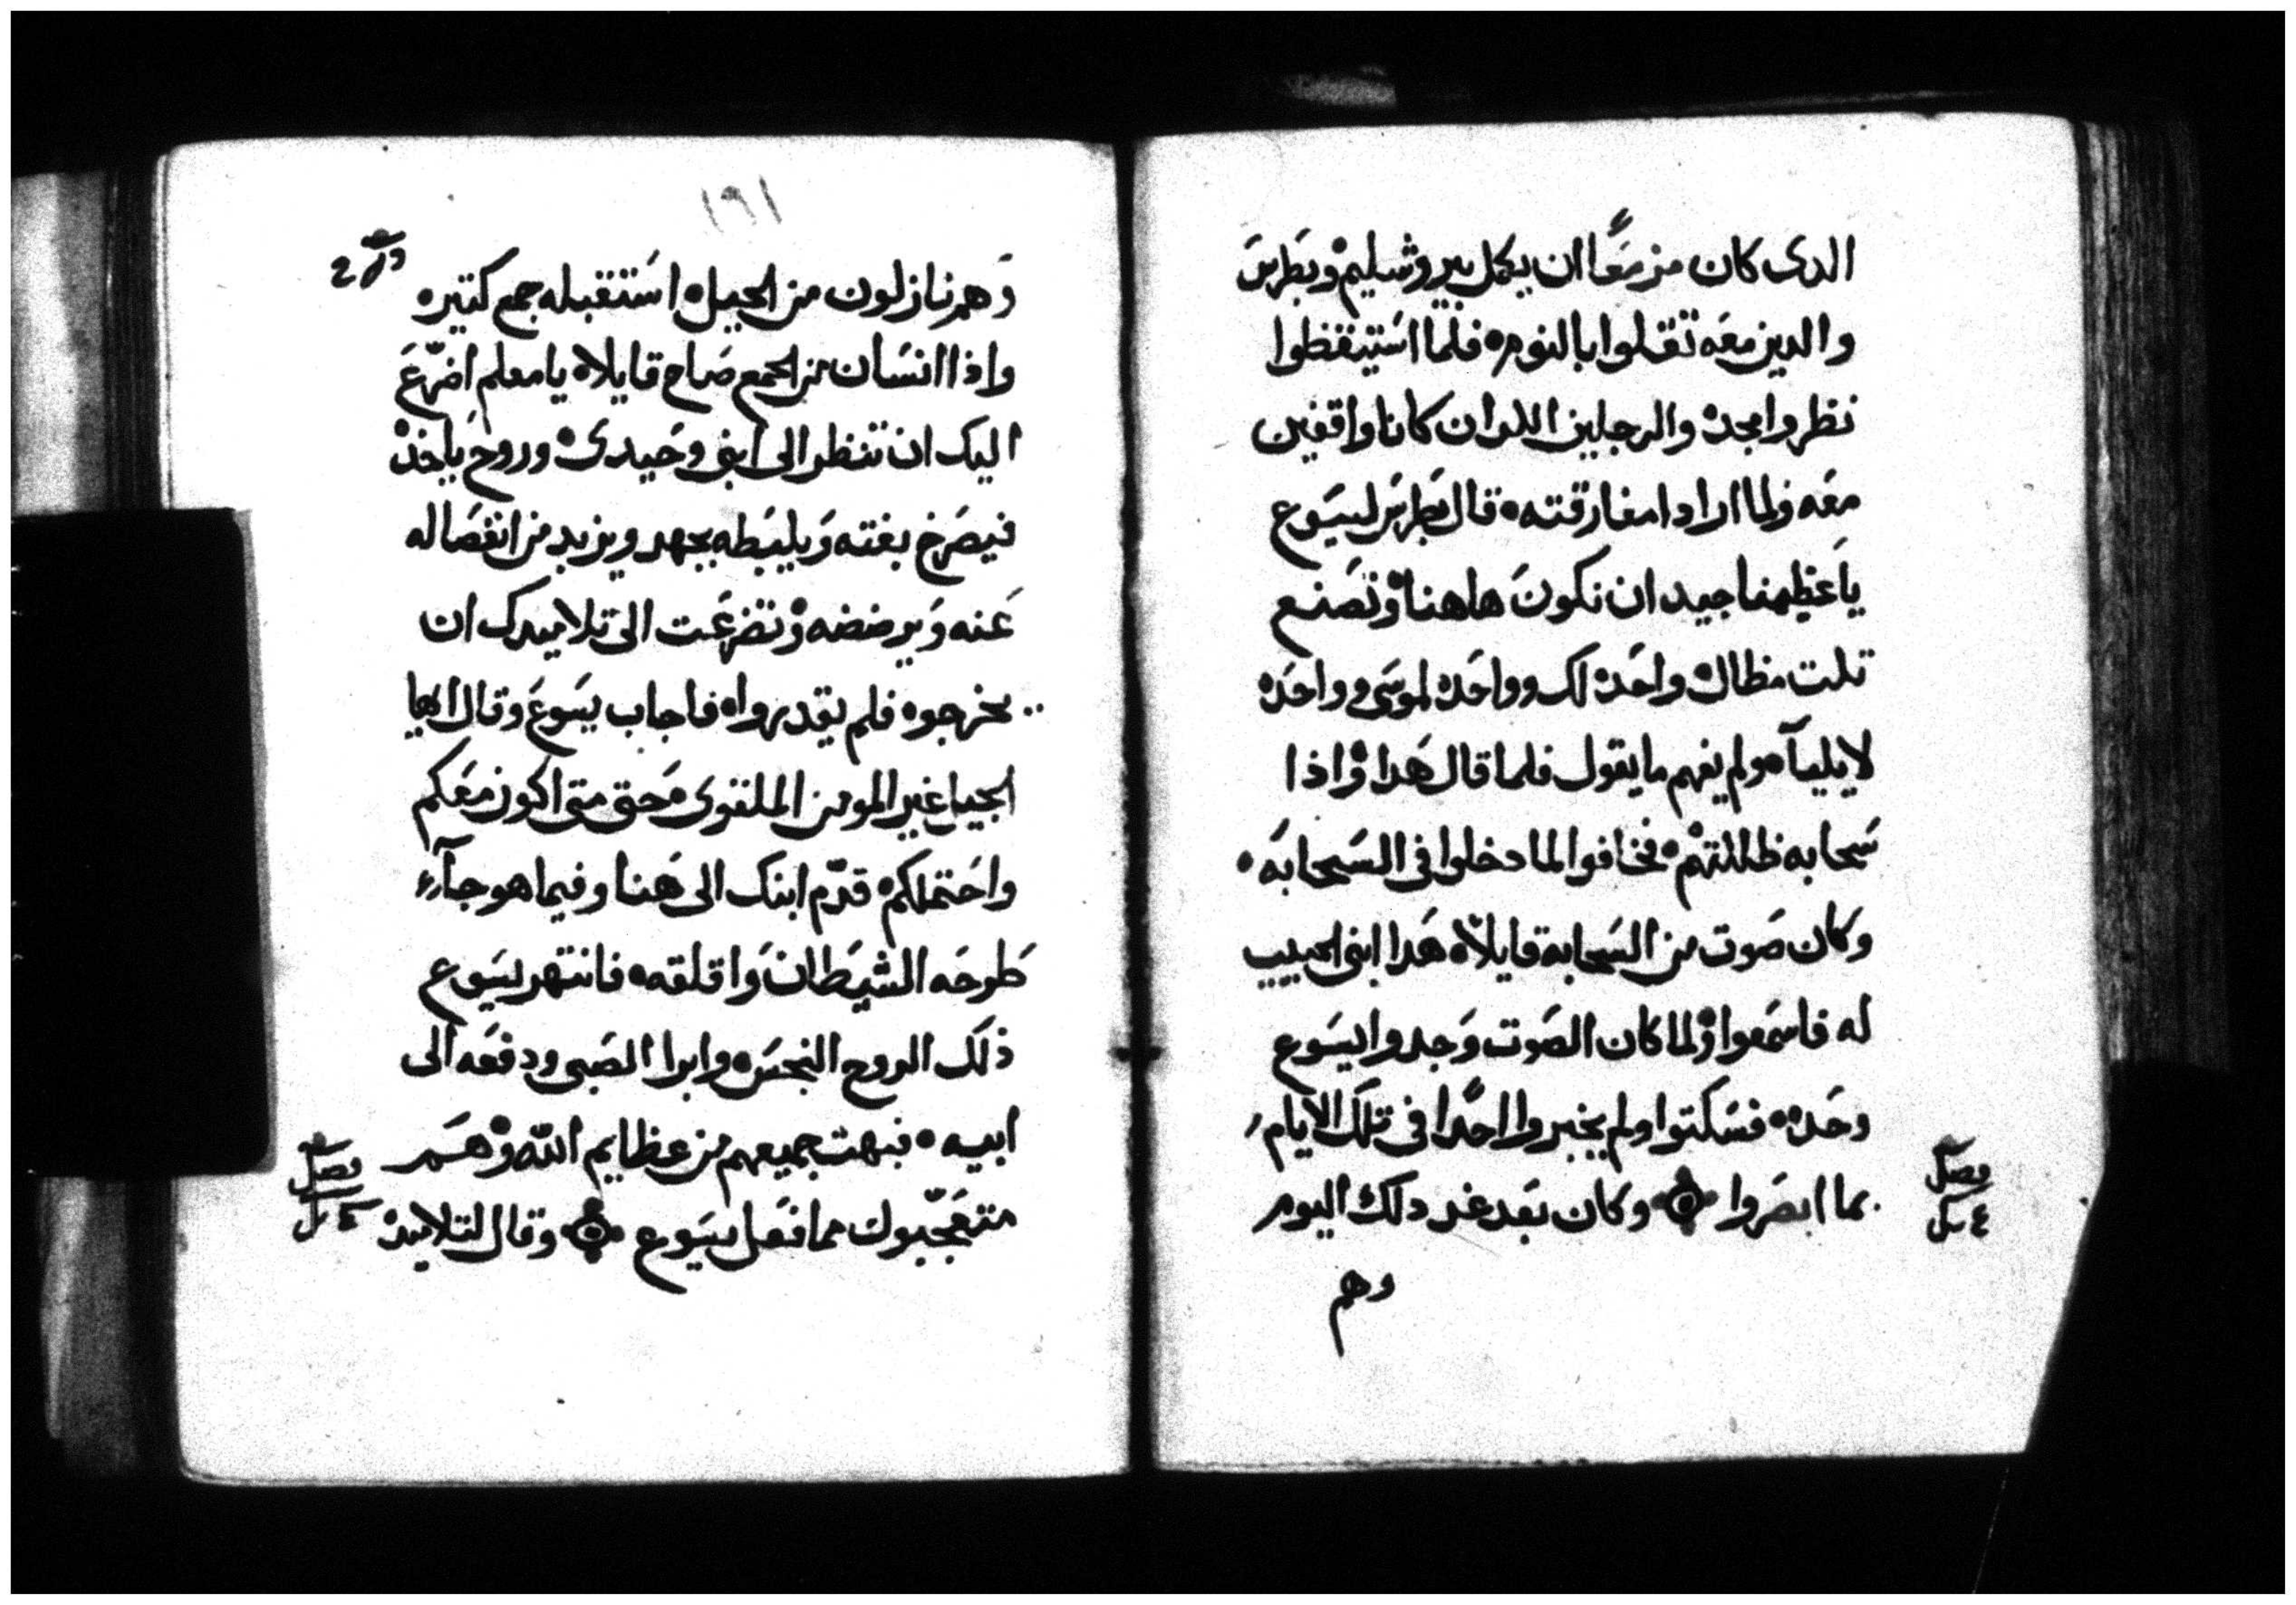 الدى كان مزمعًا ان يكمل بيروشليم وبطرس
والدين معه تقلوا بالنوم فلما استيقظوا
نظروا مجده والرجلين اللدان كانا واقفين
معه ولما ارادا مفارقته قال بطرس ليسوع
يا عظيمنا جيد ان نكون هاهنا ونصنع
تلت مظال واحده لك وواحده لموسى وواحده
لايليآ ولم يفهم ما يقول فلما قال هدا واذا
سحابه ظللتهم فخافوا لما دخلوا في السحابه
وكان صوت من السحابة قايلاً هدا ابنى الحبيب
له فاسمعوا ولما كان الصوت وجدوا يسوع
وحده فسكتوا ولم يخبروا احدًا في تلك الايام
بما ابصروا وكان بعد غد دلك اليوم
فصل
وهم
١٩١
وهم نازلون من الجبل استقبله جمع كتير
واذا انسان من الجمع صاح قايلا يا معلم اضرع
اليك ان تنظر الى ابنى وحيدى وروح ياخده
فيصرخ بغته ويلبطه بجهد ويزبد من انفصاله
عنه ويرضضه وتضرعت الى تلاميدك ان
يخرجوه فلم يقدروا فاجاب يسوع وقال ايها
الجيل غير المومن الملتوى حتى متى اكون معكم
واحتملكم قدّم ابنك الى هنا وفيما هو جآء
طرحه الشيطان واقلقه فانتهر يسوع
ذلك الروح النجس وابرا الصبى ودفعه الى
ابيه فبهت جميعهم من عظايم الله وهم
متعجّبون مما فعل يسوع وقال لتلاميده
فصل